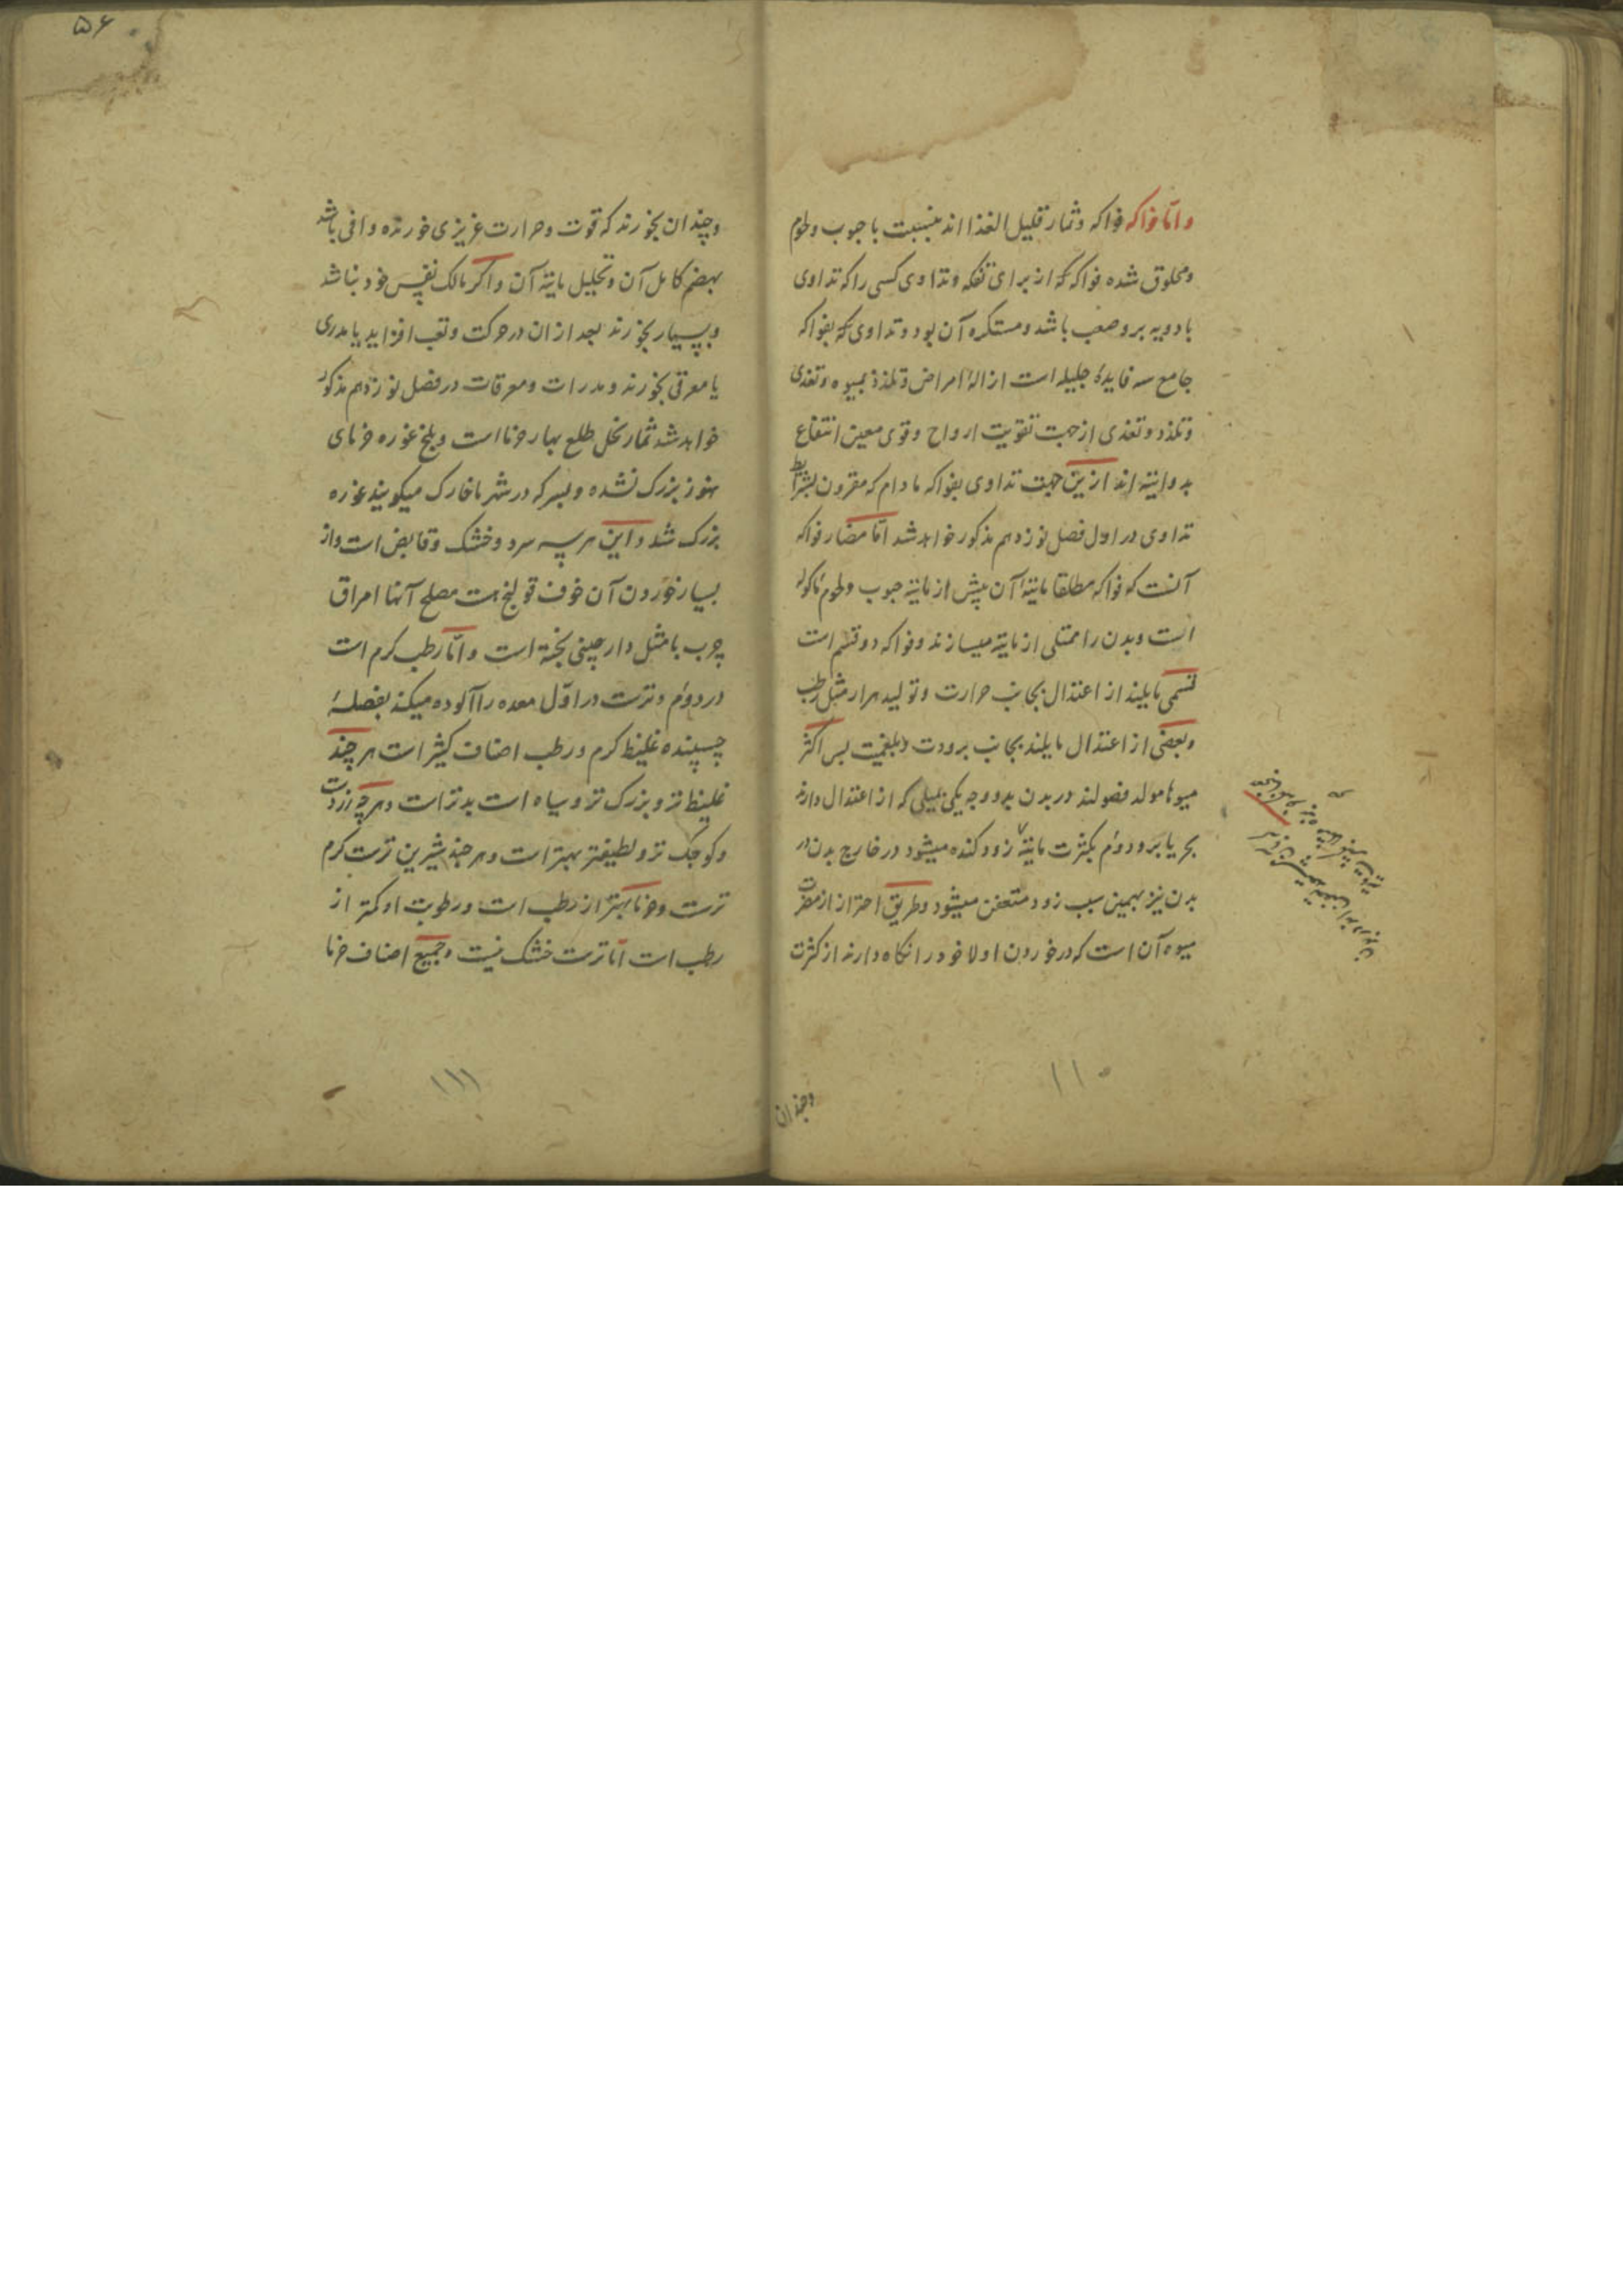 واما فواکه فواکه وثمار قلیل الغذا اند بنسبت با حبوب ولحوم
ومخلوق شده فواکه که از برای تفکه وتداوی کسی را که تداوی
بادویه برو صعب باشد ومستکره آن بود وتداوی که بفواکه
جامع سه فایدهٔ جلیله است ازالهٔ امراض وتلذذ بمیوه وتغذی
وتلذذ وتغذی از جهت تقویت ارواح وقوی معین انتفاع
بدوائیة اند ازین جهت تداوی بفواکه مادام که مقرون بشرایط
تداوی در اول فصل نوزدهم مذکور خواهد شد اما مضار فواکه
آنست که فواکه مطلقا مائیة آن بیش از مائیة حبوب ولحوم ماکوله
است وبدن را ممتلی از مائیة میسازند وفواکه دو قسم است
قسمی مایلند از اعتدال بجانب حرارت وتولید مرار مثل رطب
وبعضی از اعتدال مایلند بجانب برودت وبلغمیت پس اکثر
میوها مولد فضولند در بدن بدو وجه یکی بمیلی که از اعتدال دارند
بحر یا برد ودوم بکثرت مائیة زود کنده میشود در خارج بدن در
بدن نیز بهمین سبب زود متعفن میشود وطریق احتراز از مضرت
میوه آن است که در خوردن اولا خود را نکاه دارند از کثرت
وچندان
۱۱۰
۵۶
وچندان بخورند که قوت وحرارت غریزی خورنده وافی باشد
بهضم کامل آن وتحلیل مائیة آن واکر مالک نفس خود نباشد
وبسیار بخورند بعد از ان در حرکت وتعب افزاید یا مدری
یا معرقی بخورند ومدرات ومعرقات در فصل نوزدهم مذکور
خواهد شد ثمار نخل طلع بهار خرما است وبلح غوره خرمای
هنوز بزرک نشده وبسر که در شهر ما خارک میکویند غوره
بزرک شد واین هر سه سرد وخشک وقابض است واز
بسیار خوردن آن خوف قولنج هست مصلح آنها امراق
چرب با مثل دارچینی پخته است واما رطب کرم است
در دوم وترست در اول معده را آلوده میکند بفضلهٔ
چسپنده غلیظ کرم ورطب اصناف کثیر است هر چند
غلیظ تر وبزرک تر وسیاه است بدتر است وهر چه زردست
وکوچک تر ولطیفتر بهتر است وهر چند شیرین ترست کرم
ترست وخرما بهتر از رطب است ورطوبت او کمتر از
رطب است اما ترست خشک نیست وجمیع اصناف خرما
۱۱۱